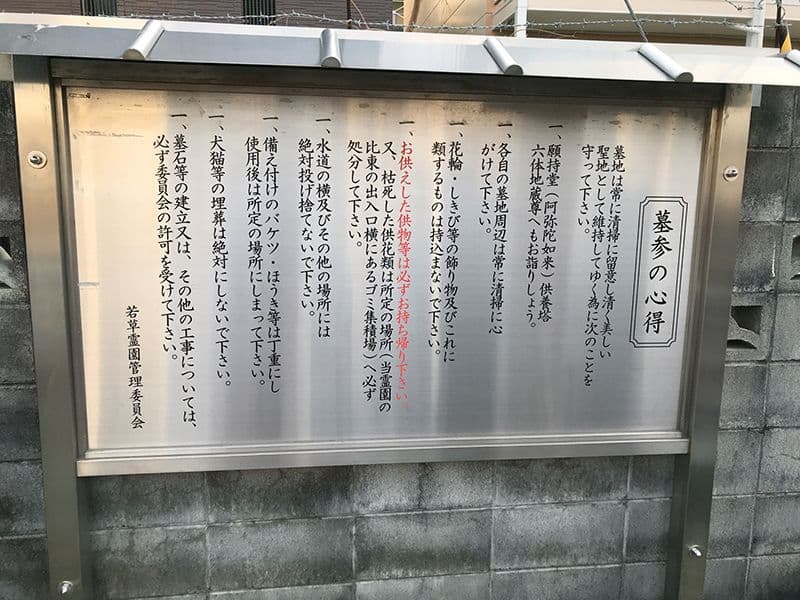 墓参の心得
墓地は常に清掃に留意し清く美しい
聖地として維持してゆく為に次のことを
守って下さい。
一、願持堂(阿弥陀如来)供養塔
六体地蔵尊へもお詣りしょう。
一、各自の墓地周辺は常に清掃に心
がけて下さい。
一、花輪・しきび等の飾り物及びこれに
類するものは持込まないで下さい。
一、お供えした供物等は必ずお持ち帰り下さい。
又、枯死した供花類は所定の場所(当霊園の
比東の出入口横にあるゴミ集積場)へ必ず
処分して下さい。
一、水道の横及びその他の場所には
絶対投げ捨てないで下さい。
一、備え付けのバケツ・ほうき等は丁重にし
使用後は所定の場所にしまって下さい。
一、犬猫等の埋葬は絶対にしないで下さい。
一、墓石等の建立又は、その他の工事については、
必ず委員会の許可を受けて下さい。
若草霊園管理委員会